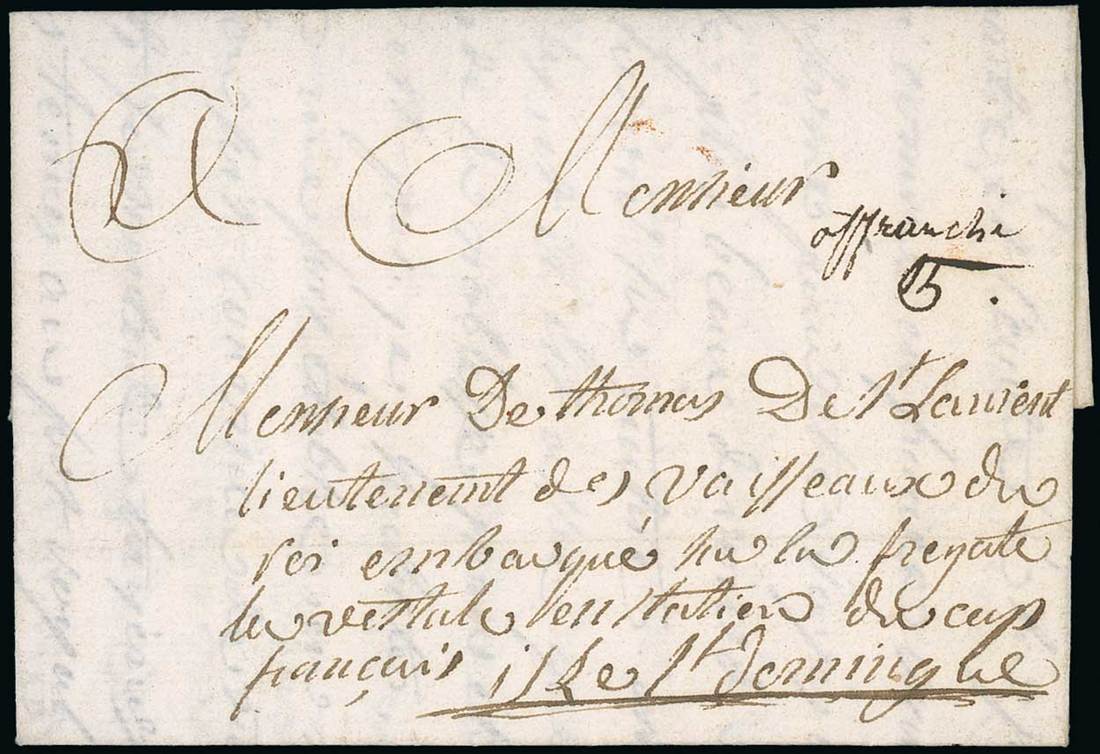 A Monsieur
affranchi
B.
Monsieur De thomas De St Laurent
lieutenent des vaisseaux du
roi embarqué su la fregate
la vestale en station du cap
français isle St domingue